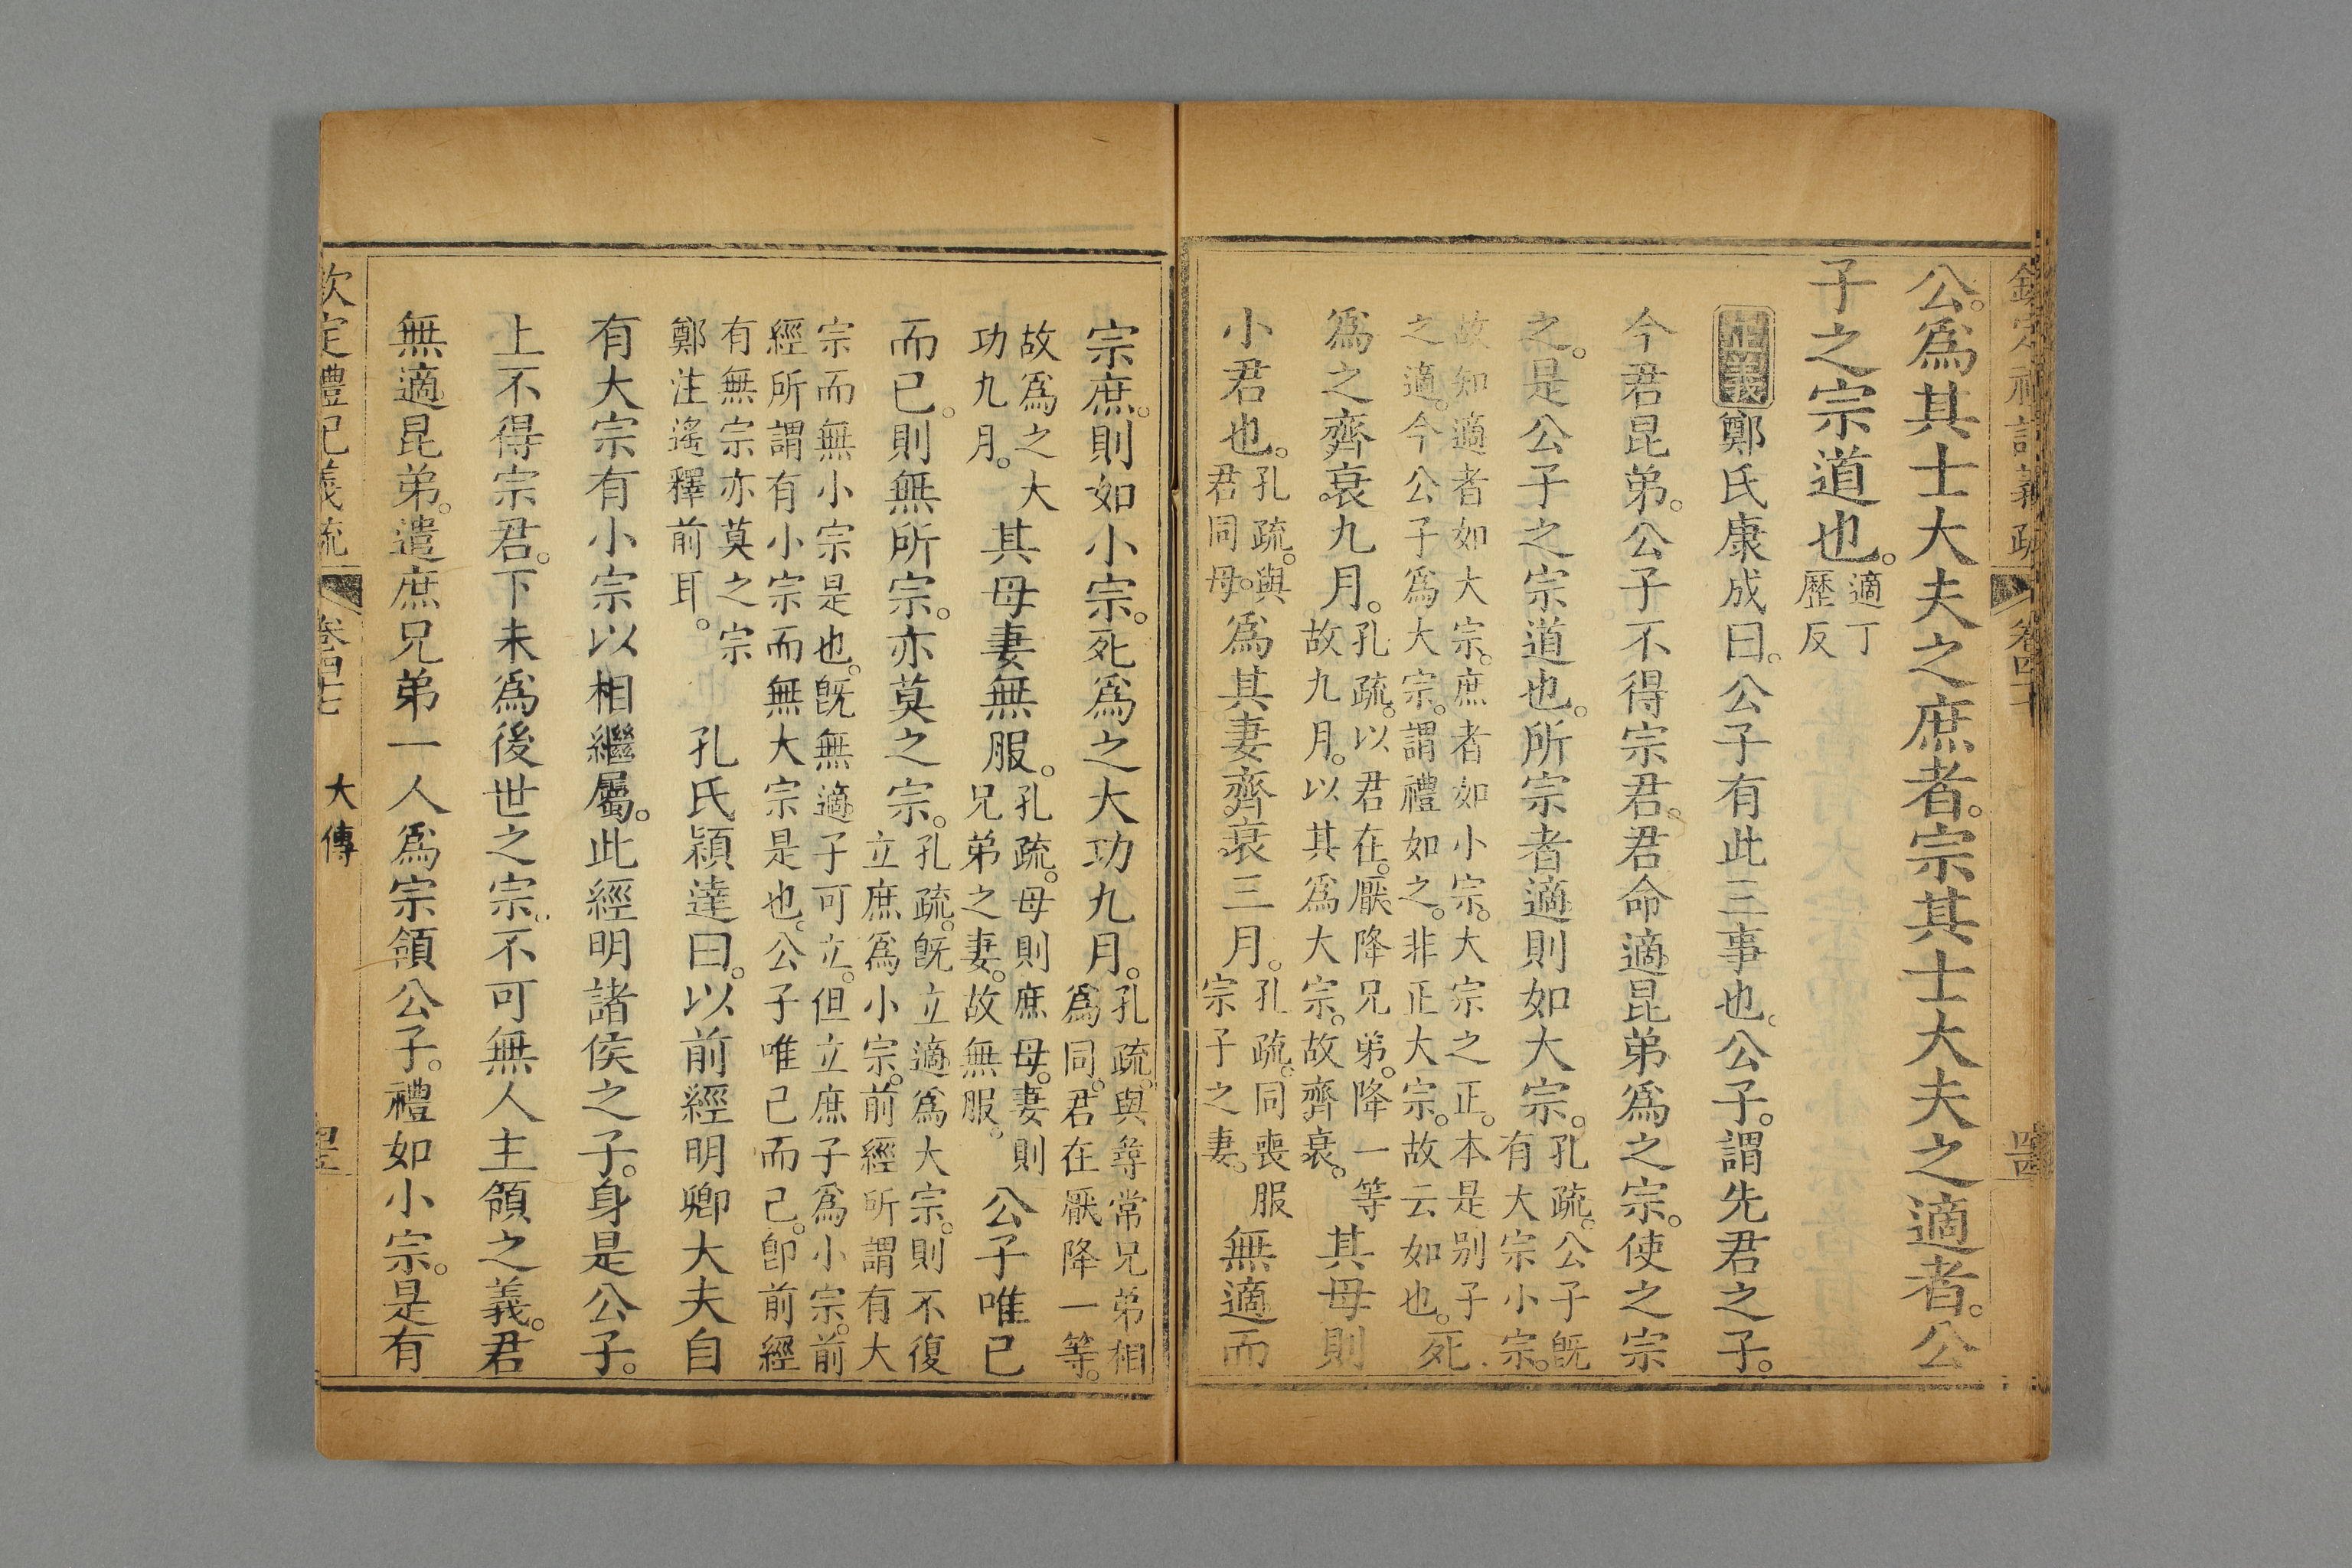 欽定禮記義疏 卷四十
公。爲其士大夫之庶者。宗其士大夫之適者。公
子之宗道也。適丁
歷反
正義鄭氏康成曰。公子有此三事也。公子。謂先君之子。
今君昆弟。公子不得宗君。君命適昆弟爲之宗。使之宗
之。是公子之宗道也。所宗者適則如大宗。孔疏。公子旣
有大宗小宗。
故知適者如大宗。庶者如小宗。大宗之正。本是别子
之適。今公子爲大宗。謂禮如之。非正大宗。故云如也。死
爲之齊衰九月。孔疏。以君在。厭降兄弟。降一等
故九月。以其爲大宗。故齊衰。其母則
小君也。孔疏。與
君同母。爲其妻齊衰三月。孔疏。同喪服
宗子之妻。無適而
宗庶。則如小宗。死爲之大功九月。孔疏。與尋常兄弟相
爲同。君在厭降一等。
故爲之大
功九月。其母妻無服。孔疏。母則庶母。妻則
兄弟之妻。故無服。公子唯已
而已。則無所宗。亦莫之宗。孔疏。旣立適爲大宗。則不復
立庶爲小宗。前經所謂有大
宗而無小宗是也。旣無適子可立。但立庶子爲小宗。前
經所謂有小宗而無大宗是也。公子唯已而已。卽前經
有無宗亦莫之宗
鄭注遙釋前耳。孔氏穎達曰。以前經明卿大夫自
有大宗有小宗以相繼屬。此經明諸侯之子。身是公子。
上不得宗君。下未爲後世之宗。不可無人主領之義。君
無適昆弟。遣庶兄弟一人爲宗領公子。禮如小宗。是有
欽定禮記義疏 卷四十七 大傳